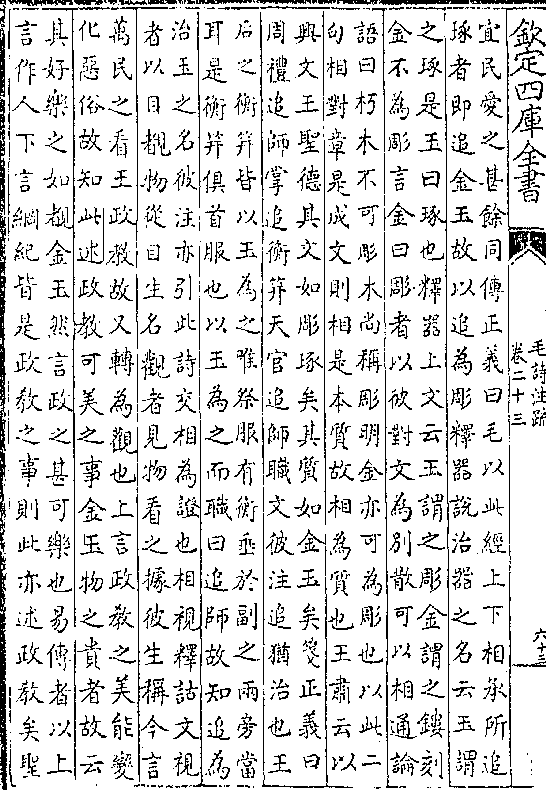 欽定四庫全書
毛詩注疏
卷二十三
六十三
宜民愛之甚餘同傳正義曰毛以此經上下相承所追
琢者即追金玉故以追為彫釋器說治器之名云玉謂
之琢是玉曰琢也釋器上文云玉謂之彫金謂之鏤刻
金不為彫言金曰彫者以彼對文為別散可以相通論
語曰朽木不可彫木尚稱彫明金亦可為彫也以此二
句相對章是成文則相是本質故相為質也王肅云以
興文王聖德其文如彫琢矣其質如金玉矣箋正義曰
周禮追師掌追衡笄天官追師職文彼注追猶治也王
后之衡笄皆以玉為之唯祭服有衡垂於副之兩旁當
耳是衡笄俱首服也以玉為之而職曰追師故知追為
治玉之名彼注亦引此詩交相為證也相視釋詁文視
者以目覩物從目生名觀者見物看之據彼生稱今言
萬民之看王政教故又轉為觀也上言政教之美能變
化惡俗故知此述政教可美之事金玉物之貴者故云
其好樂之如覩金玉然言政之甚可樂也易傳者以上
言作人下言綱紀皆是政教之事則此亦述政教矣聖